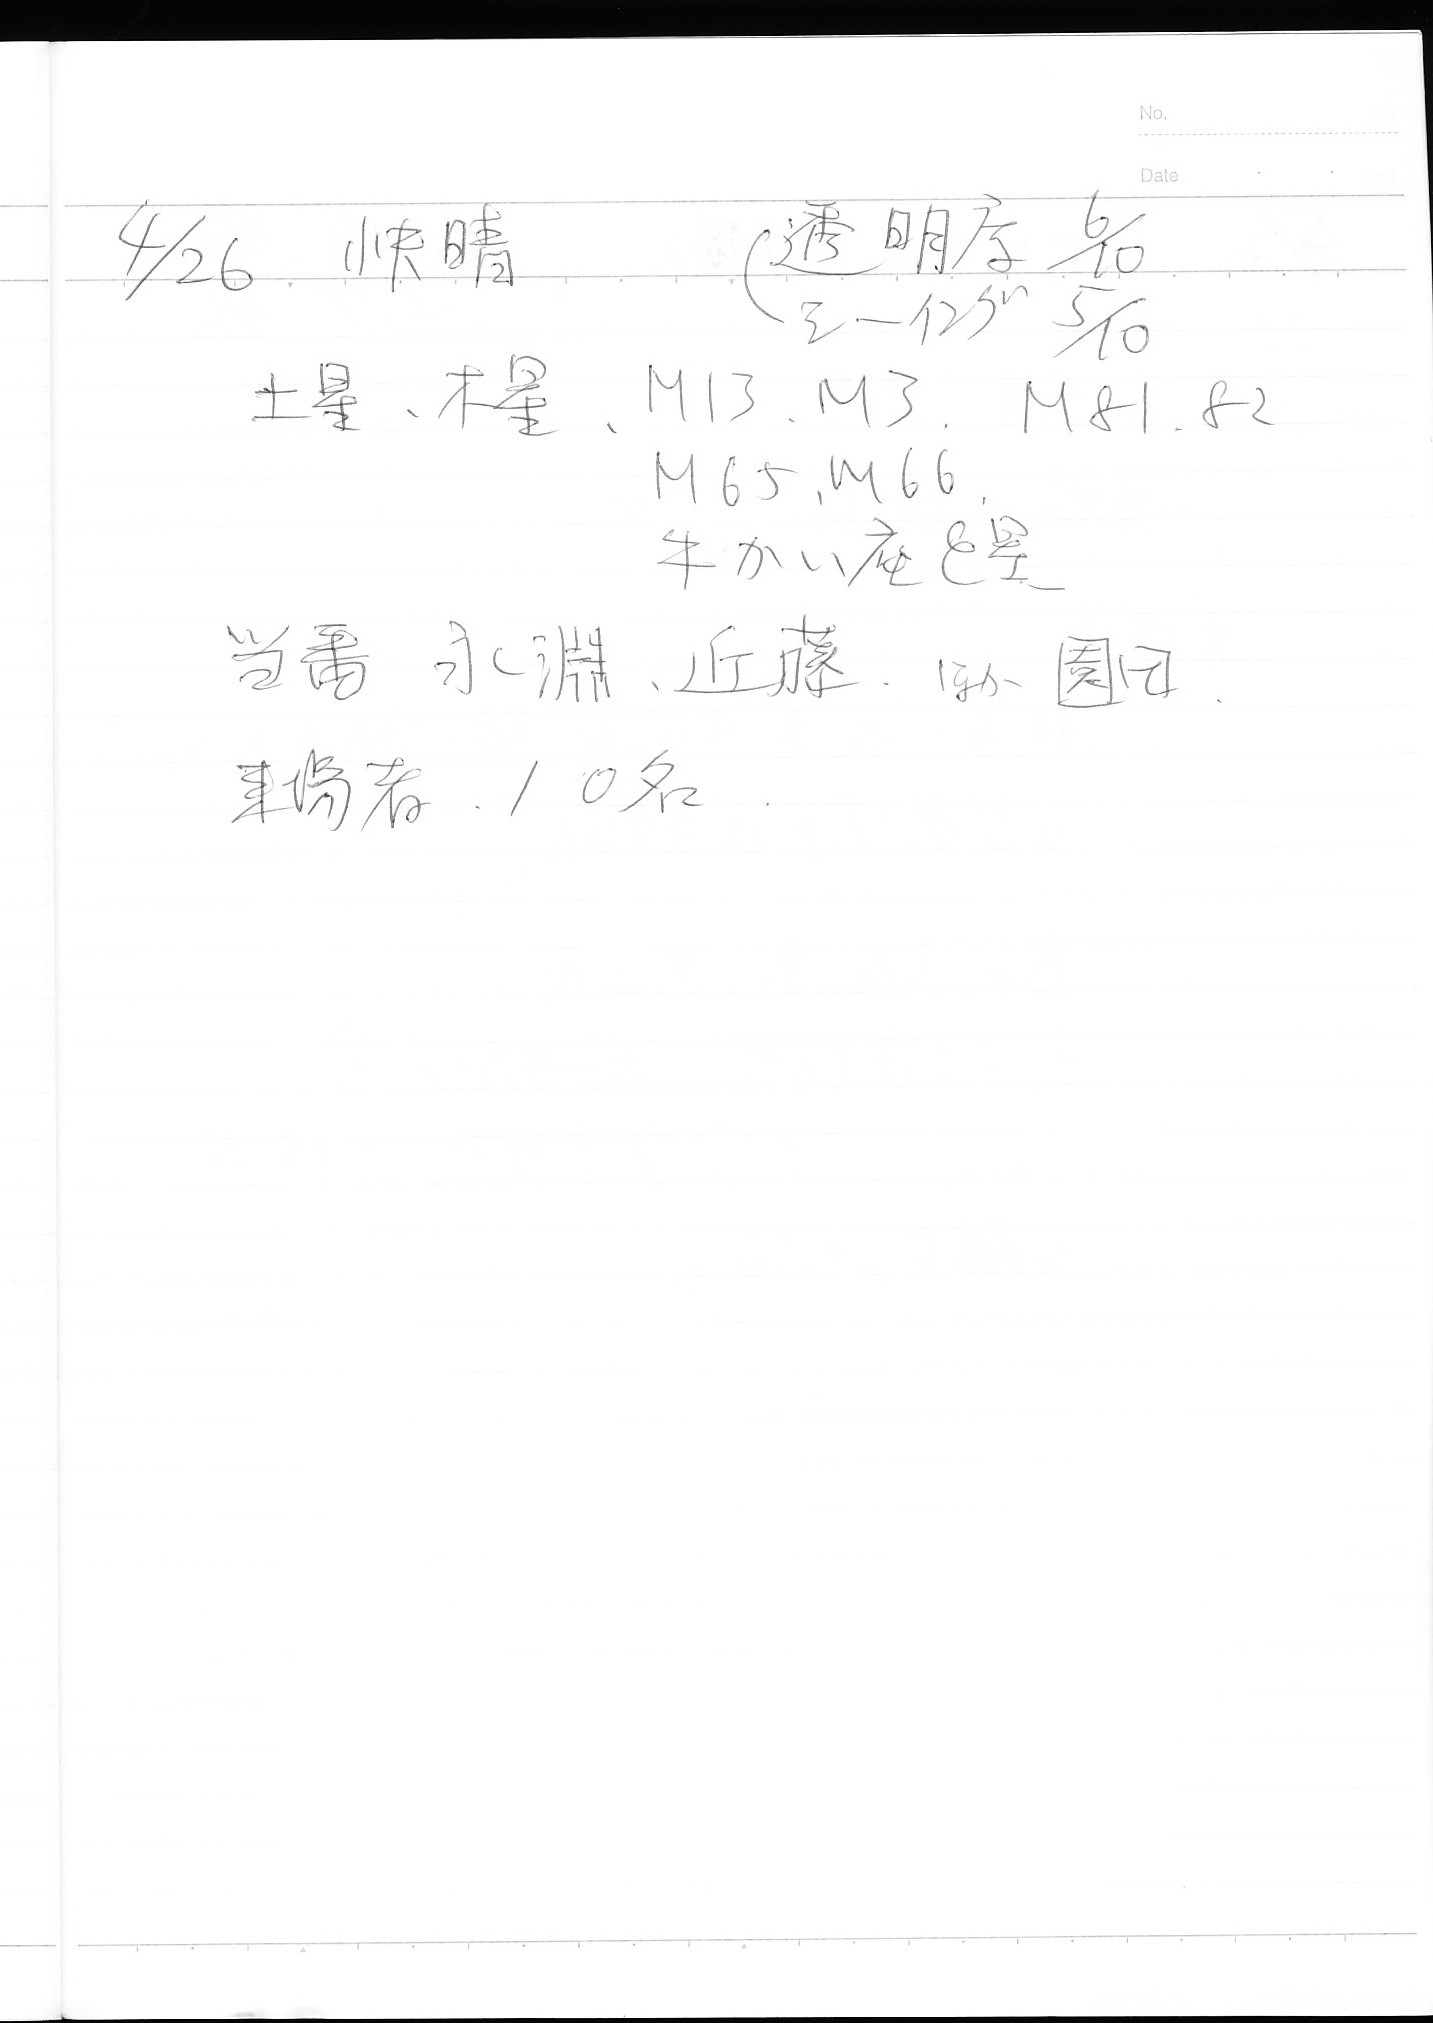 No.
Date
4/26 快晴 透明度 6/10
シーイング 5/10
土星、木星、M13、M3、M81、82
M65、M66、
牛かい座ε星
当番 永淵、近藤、ほか 園田.
来場者、10名.